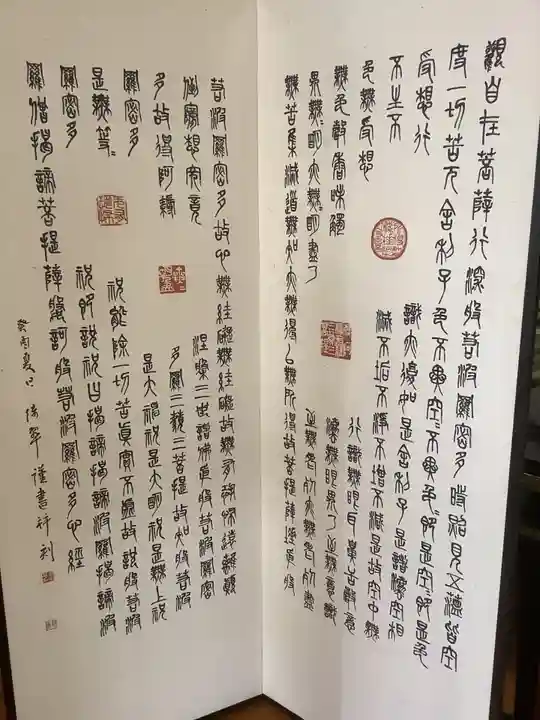 觀自在菩薩行深般若波羅蜜多時照見五蘊皆空
度一切苦厄舍利子色不異空空不異色色即是空空即是色
受想行
識亦復如是舍利子是諸法空相
不生不
滅不垢不淨不增不減是故空中無
色無受想
行識無眼耳鼻舌身意
無色聲香味觸
法無眼界乃至無意識
界無無明亦無無明盡乃
至無老死亦無老死盡
無苦集滅道無知亦無得以無所得故菩提薩埵依般
若波羅蜜多故心無罣礙無罣礙故無有恐怖遠離顛
倒夢想究竟
涅槃三世諸佛依般若波羅蜜
多故得阿耨
多羅三藐三菩提故知般若波
羅蜜多
是大神咒是大明咒是無上咒
是無等等
咒能除一切苦真實不虛故說般若波
羅蜜多
咒即說咒曰揭諦揭諦波羅揭諦波
羅僧揭諦菩提薩婆訶般若波羅蜜多心經
夏 謹書